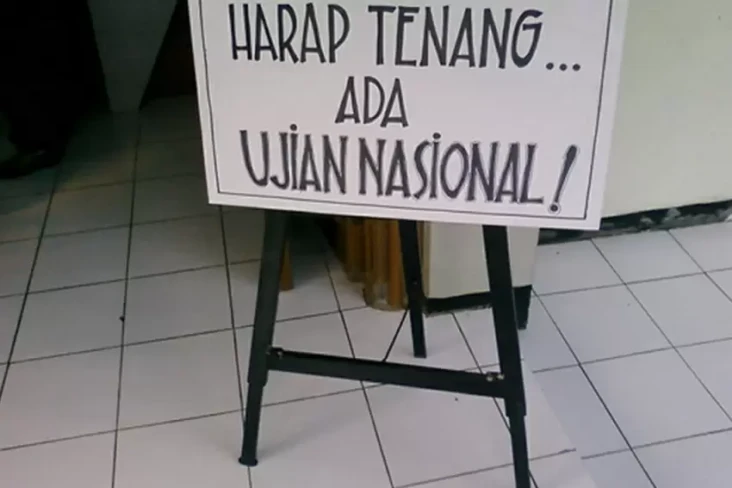 HARAP TENANG...
ADA
UJIAN NASIONAL!